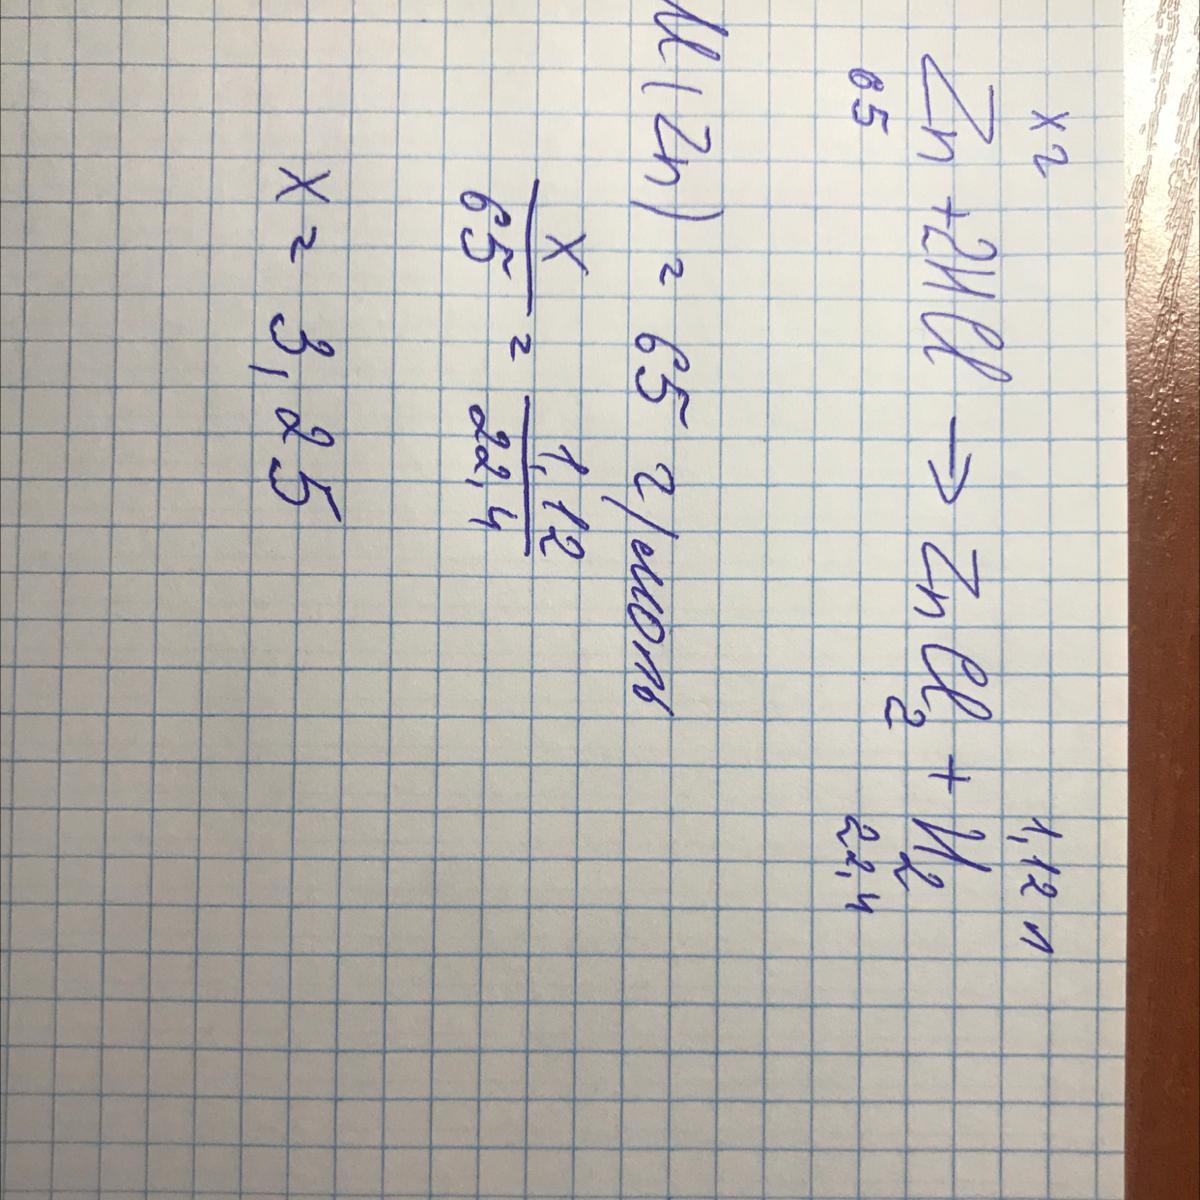 x г 1,12 л
Zn + 2HCl → ZnCl2 + H2
65 22,4
M(Zn) = 65 г/моль
x/65 = 1,12/22,4
x = 3,25